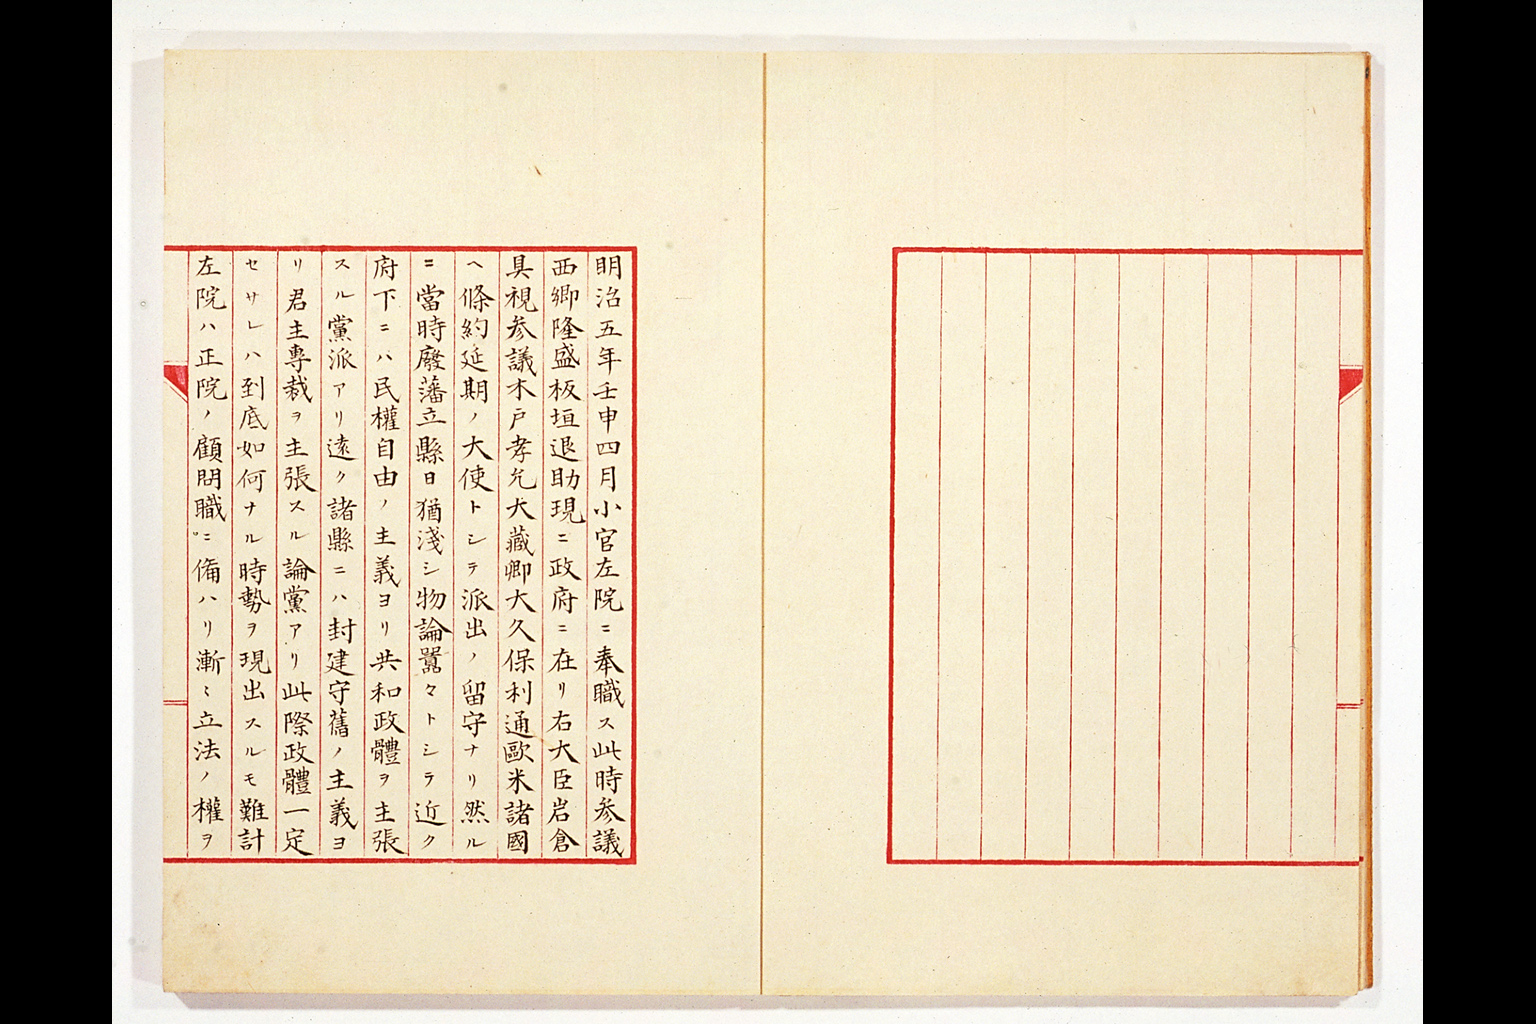 明治五年壬申四月小官左院ニ奉職ス此時参議
西郷隆盛板垣退助現ニ政府ニ在リ右大臣岩倉
具視参議木戸孝允大藏卿大久保利通歐米諸國
ヘ條約延期ノ大使トシテ派出ノ留守ナリ然ル
ニ當時廢藩立縣日猶淺シ物論囂々トシテ近ク
府下ニハ民權自由ノ主義ヨリ共和政體ヲ主張
スル黨派アリ遠ク諸縣ニハ封建守舊ノ主義ヨ
リ君主專裁ヲ主張スル論黨アリ此際政體一定
セサレハ到底如何ナル時勢ヲ現出スルモ難計
左院ハ正院ノ顧問職ニ備ハリ漸々立法ノ權ヲ